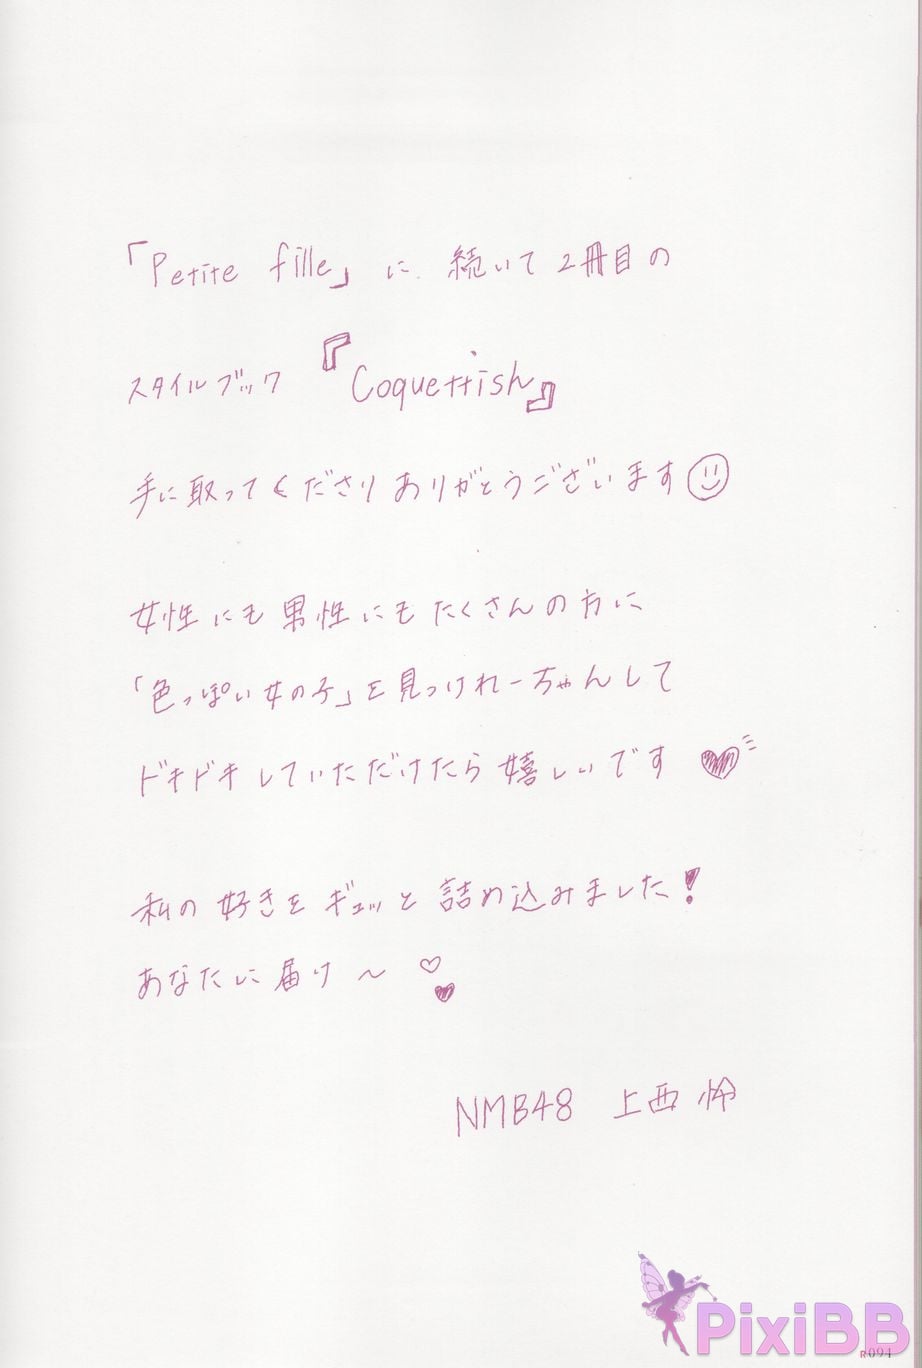 「Petite fille」に続いて2冊目の
スタイルブック『Coquettish』
手に取ってくださりありがとうございます
女性にも男性にもたくさんの方に
「色っぽい女の子」を見つけれーちゃんして
ドキドキしていただけたら嬉しいです
私の好きをギュッと詰め込みました!
あなたに届け〜
NMB48 上西怜
PixiBB
R094